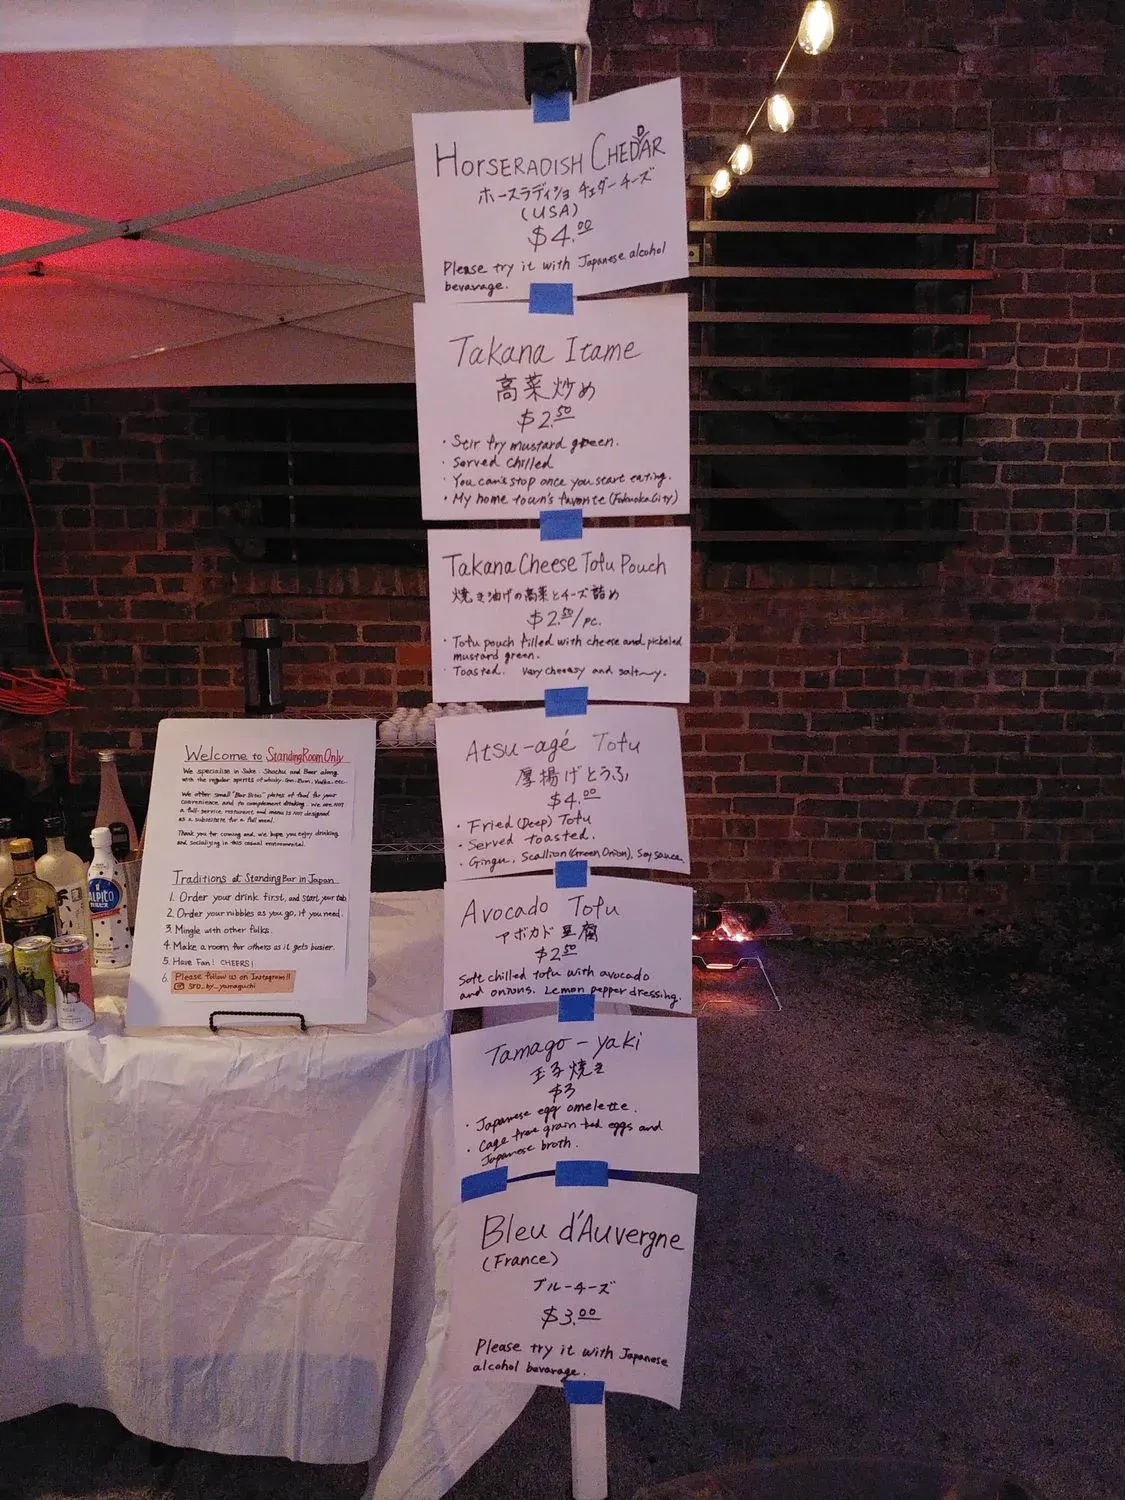 HORSERADISH CHEDDAR
ホースラディショ チェダーチーズ
(USA)
$4.00
Please try it with Japanese alcohol
bevarage.
Takana Itame
高菜炒め
$2.50
・Stir fry mustard green.
・Served chilled
・You can't stop once you start eating.
・My home town's favorite (Fukuoka City)
Takana Cheese Tofu Pouch
焼き油げの高菜とチーズ詰め
$2.50/pc.
・Tofu pouch filled with cheese and pickeled
mustard green.
・Toasted. Very cheeasy and salt~y.
Atsu-agé Tofu
厚揚げとうふ
$4.00
・Fried (Deep) Tofu
・Served toasted.
・Gingu, Scallion (Green Onion), Soy sauce
Avocado Tofu
アボカド豆腐
$2.50
Soft chilled tofu with avocado
and onions. Lemon pepper dressing.
Tamago-yaki
玉子焼き
$3
・Japanese egg omelette.
・Cage free grain fed eggs and
Japanese broth.
Bleu d'Auvergne
(France)
ブルーチーズ
$3.00
Please try it with Japanese
alcohol bevarage.
Welcome to Standing Room Only
We specialise in Sake, Shochu and Beer along
with the regular spirits of whisky, Gin, Rum, Vodka, etc.
We offer small "Bar Bites" plates of food for your
convenience and to complement drinking. We are NOT
a full-service restaurant and menu is NOT designed
as a substitute for a full meal.
Thank you for coming and we hope you enjoy drinking
and socializing in this casual environmental.
Traditions at Standing Bar in Japan
1. Order your drink first, and start your tab
2. Order your nibbles as you go, if you need.
3. Mingle with other folks.
4. Make a room for others as it gets busier.
5. Have Fun! CHEERS!
6. Please follow us on Instagram!!
SRO_by_yamaguchi
CALPICO